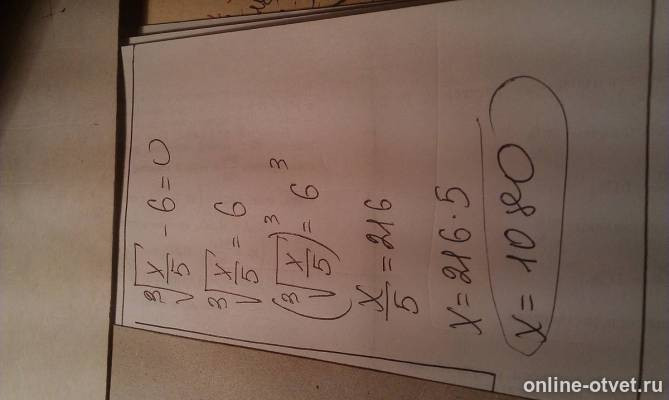 ∛(x/5) - 6 = 0
∛(x/5) = 6
(∛(x/5))³ = 6³
x/5 = 216
x = 216 · 5
x = 1080
online-otvet.ru